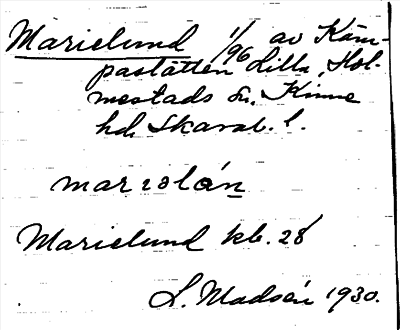 Marielund 1/96 av Käm-
pastätten Lilla, Hol-
mestads sn. Kinne
hd. Skarab. l.
marıolán
Marielund kb. 28
L. Madsén 1930.